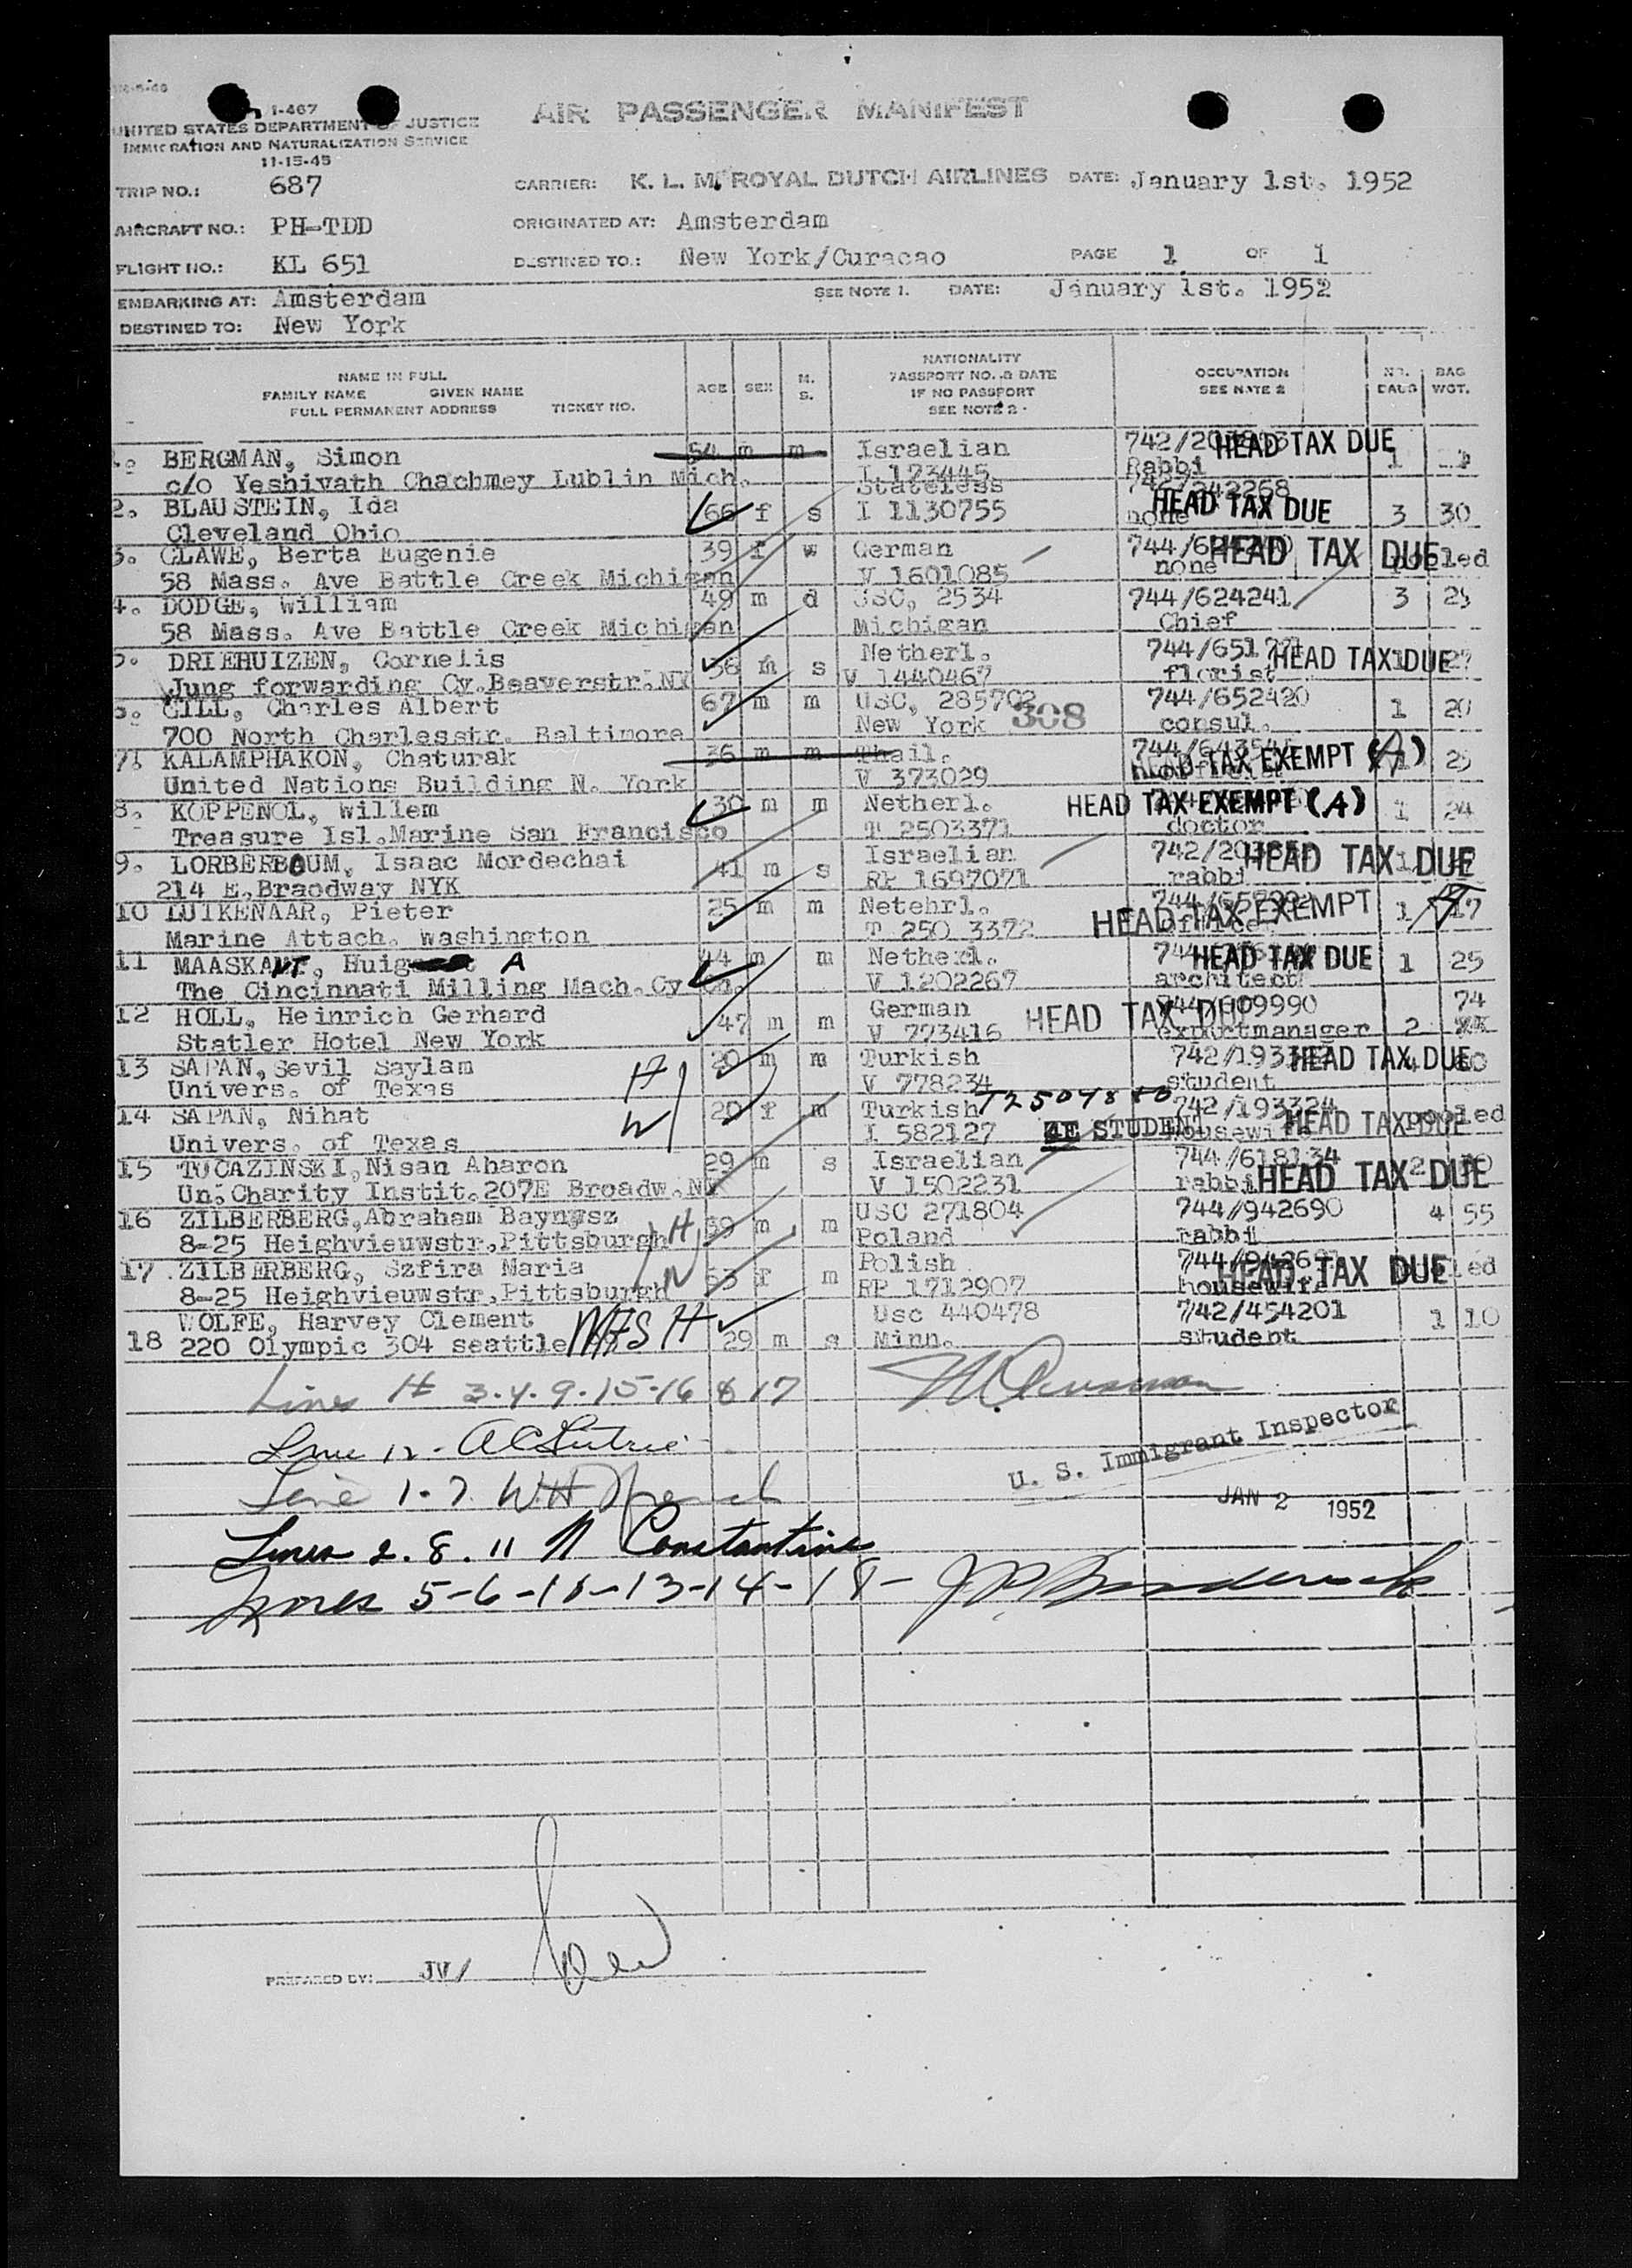 I-467
UNITED STATES DEPARTMENT OF JUSTICE
IMMIGRATION AND NATURALIZATION SERVICE
11-15-45
AIR PASSENGER MANIFEST
TRIP NO.: 687 CARRIER: K. L. M. ROYAL DUTCH AIRLINES DATE: January 1st. 1952
AIRCRAFT NO.: PH-TDD ORIGINATED AT: Amsterdam
FLIGHT NO.: KL 651 DESTINED TO.: New York/Curacao PAGE 1 OF 1
EMBARKING AT: Amsterdam SEE NOTE 1. DATE: January 1st. 1952
DESTINED TO: New York
NAME IN FULL
FAMILY NAME GIVEN NAME
FULL PERMANENT ADDRESS TICKET NO.
AGE SEX M. S.
NATIONALITY
PASSPORT NO. & DATE
IF NO PASSPORT
SEE NOTE 2
OCCUPATION
SEE NOTE 2
BAG WGT.
BERGMAN, Simon 54 m m Israelian HEAD TAX DUE
c/o Yeshivath Chachmey Lublin Mich. I 173445 Rabbi 1
2. BLAUSTEIN, Ida 66 f s Stateless 742/242268
Cleveland Ohio I 1130755 none HEAD TAX DUE 3 30
3. CLAWE, Berta Eugenie 39 f w German HEAD TAX DUE
58 Mass. Ave Battle Creek Michigan V 1601085 none
4. DODGE, William 49 m d USC, 2534 744/624241 3
58 Mass. Ave Battle Creek Michigan Michigan Chief
5. DRIEHUIZEN, Cornelis 36 m s Netherl. HEAD TAX DUE
Jung forwarding Cy.Beaverstr.NY V 1440467 florist
GILL, Charles Albert 67 m m USC, 285702 744/652420 1 20
700 North Charlesstr. Baltimore New York 308 consul.
7. KALAMPHAKON, Chaturak 36 m m Thail. HEAD TAX EXEMPT (A)
United Nations Building N. York V 373029
8. KOPPENOL, Willem 30 m m Netherl. HEAD TAX EXEMPT (A) 1 24
Treasure Isl.Marine San Francisco T 2503371 doctor
9. LORBERBAUM, Isaac Mordechai 41 m s Israelian HEAD TAX DUE
214 E.Braodway NYK RP 1697071 rabbi
10 LUIKENAAR, Pieter 25 m m Netehrl. HEAD TAX EXEMPT 1 17
Marine Attach. Washington T 250 3372
11 MAASKANT, Huig A 44 m m Netherl. HEAD TAX DUE 1 25
The Cincinnati Milling Mach.Cy V 1202267 architect
12 HOLL, Heinrich Gerhard 47 m m German HEAD TAX DUE 74
Statler Hotel New York V 773416 exportmanager 2
13 SAPAN, Sevil Saylam H 20 m m Turkish HEAD TAX DUE
Univers. of Texas V 778234 student
14 SAPAN, Nihat W 20 f m Turkish 742/193324 HEAD TAX DUE pooled
Univers. of Texas I 582127 4E STUDENT housewife
15 TUCAZINSKI, Nisan Aharon 29 m s Israelian 744/618134
Un. Charity Instit.207E Broadw.NY V 1502231 rabbi HEAD TAX DUE
16 ZILBERBERG, Abraham Bayngsz H 59 m m USC 271804 744/942690 4 55
8-25 Heighvieuwstr.Pittsburgh Poland rabbi
17. ZILBERBERG, Szfira Maria W 53 f m Polish HEAD TAX DUE
8-25 Heighvieuwstr.Pittsburgh RP 1712907 housewife
WOLFE, Harvey Clement Usc 440478 742/454201 1 10
18 220 Olympic 304 seattle 29 m s Minn. student
Lines # 3-4-9-15-16 & 17
Line 12 -
Line 1-7 W.H. French
U. S. Immigrant Inspector
JAN 2 1952
Lines 2. 8. 11 N Constantine
Lines 5-6-10-13-14-18-
PREPARED BY: JV/